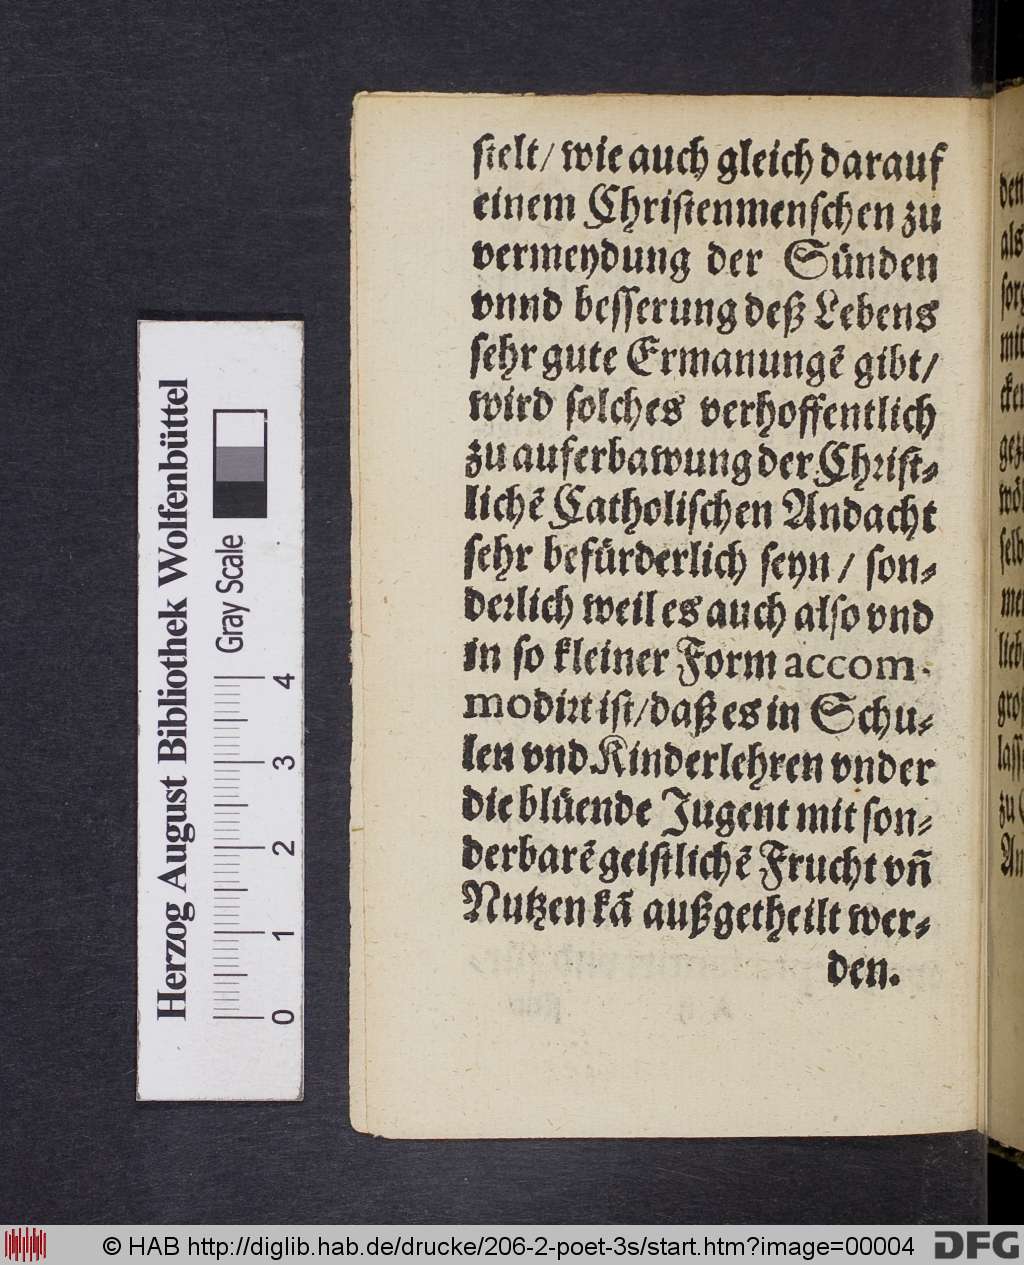 stelt/ wie auch gleich darauf
einem Christenmenschen zu
vermeydung der Sünden
vnnd besserung deß Lebens
sehr gute Ermanungẽ gibt/
wird solches verhoffentlich
zu auferbawung der Christ⸗
lichẽ Catholischen Andacht
sehr befürderlich seyn / son⸗
derlich weil es auch also vnd
in so kleiner Form accom-
modirt ist/daß es in Schu⸗
len vnd Kinderlehren vnder
die blüende Jugent mit son⸗
derbarẽ geistlichẽ Frucht vñ
Nutzen kã außgetheilt wer⸗
den.
den
als
sorg
mit
cken
wöl
selb
lieb
zu
An
Herzog August Bibliothek Wolfenbüttel
Gray Scale
0 1 2 3 4
© HAB http://diglib.hab.de/drucke/206-2-poet-3s/start.htm?image=00004
DFG